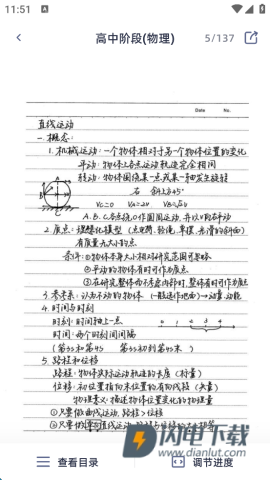 11:51
高中阶段(物理)
5/137
Date No.
直线运动
一.概念:
1. 机械运动:一个物体相对于另一个物体位置的变化
平动:物体上各点运动轨迹完全相同
转动:物体围绕某一点或某一轴发生旋转
右 斜上方45°
Vc=0 VA=2V VB=√2V
A.B.C各点绕O作圆周运动,并以V向右平动
2. 质点:理想化模型(点电荷、轻绳、单摆、光滑的斜面)
有质量无大小的点
条件:①物体本身大小相对研究范围可忽略
②平动的物体有时可作为质点
③在研究整体而不是内部时,整体有时可作为质点
3. 参考系:认为不动的物体(一般选作地面)→动量、动能
4. 时间与时刻
时刻:时间轴上一点
0 1 2 3 4
时间:两个时刻间间隔
(第3s和第4s 第3s初到第4s末)
5. 路程和位移
路程:物体实际运动轨迹的长度(标量)
位移:初位置指向末位置的有向线段(矢量)
物理意义:描述物体位置变化的物理量
①只要做曲线运动,路程>位移
②只要做单向直线运动,路程与位移的大小相等
闪电下载
www.pcsdian.com
查看目录
调节进度